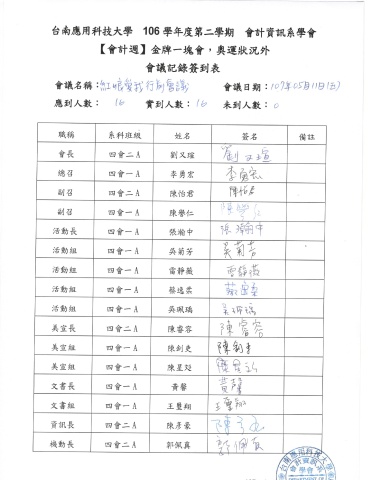 台南應用科技大學 106 學年度第二學期 會計資訊系學會
【會計週】金牌一塊會，奧運狀況外
會議記錄簽到表
會議名稱： 會議日期：107年05月11日(五)
應到人數： 16 實到人數： 16 未到人數： 0
職稱 系科班級 姓名 簽名 備註
會長 四會二A 劉又瑄 劉又瑄
總召 四會一A 李勇宏 李勇宏
副召 四會二A 陳怡君 陳怡君
副召 四會一A 陳學仁 陳學仁
活動長 四會一A 張瀚中 張瀚中
活動組 四會一A 吳菊芳 吳菊芳
活動組 四會一A 雷靜薇 雷靜薇
活動組 四會一A 蔡逸柔
活動組 四會一A 吳珮瑀 吳珮瑀
美宣長 四會二A 陳睿容 陳睿容
美宣組 四會一A 陳釗吏 陳釗吏
美宣組 四會一A 陳星彣
文書長 四會一A 黃馨 黃馨
文書組 四會一A 王璽翔 王璽翔
資訊長 四會二A 陳彥豪
機動長 四會二A 郭佩真 郭佩真